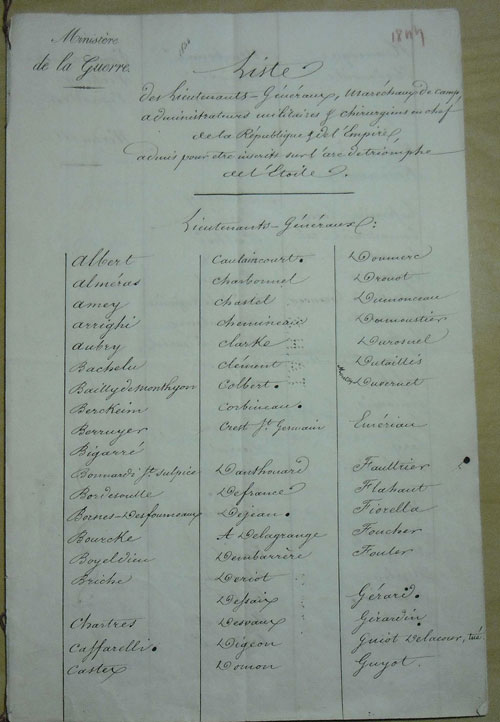 Ministère
de la Guerre.
1844
Liste
des Lieutenants-Généraux, Maréchaux de camp,
administrateurs militaires & chirurgiens en chef
de la République & de l'Empire,
admis pour être inscrits sur l'arc de triomphe
de l'Etoile.
Lieutenants-Généraux:
Albert
Alméras
Amey
Arrighi
Aubry
Bachelu
Bailly de Monthyon
Berckeim
Berruyer
Bigarré
Bonnardi St. Sulpice
Bordesoulle
Bornes-Desfourneaux
Bourcke
Boyeldieu
Briche
Chartres
Caffarelli.
Castex
Caulaincourt.
Charbonnel
Chastel
Chemineau
Clarke
Clément
Colbert.
Corbineau.
Crest St. Germain
Danthouard
Defrance
Dejean.
A Delagrange
Dembarrère
Deriot
Dessaix
Desvaux
Digeon
Domon
Doumerc
Drouot
Dumonceau
Dumoustier
Durosnel
Dutaillis
Duvernet
Emériau
Faultrier
Flahaut
Fiorella
Foucher
Fouler
Gérard.
Girardin
Guiot Delacour, tué
Guyot.